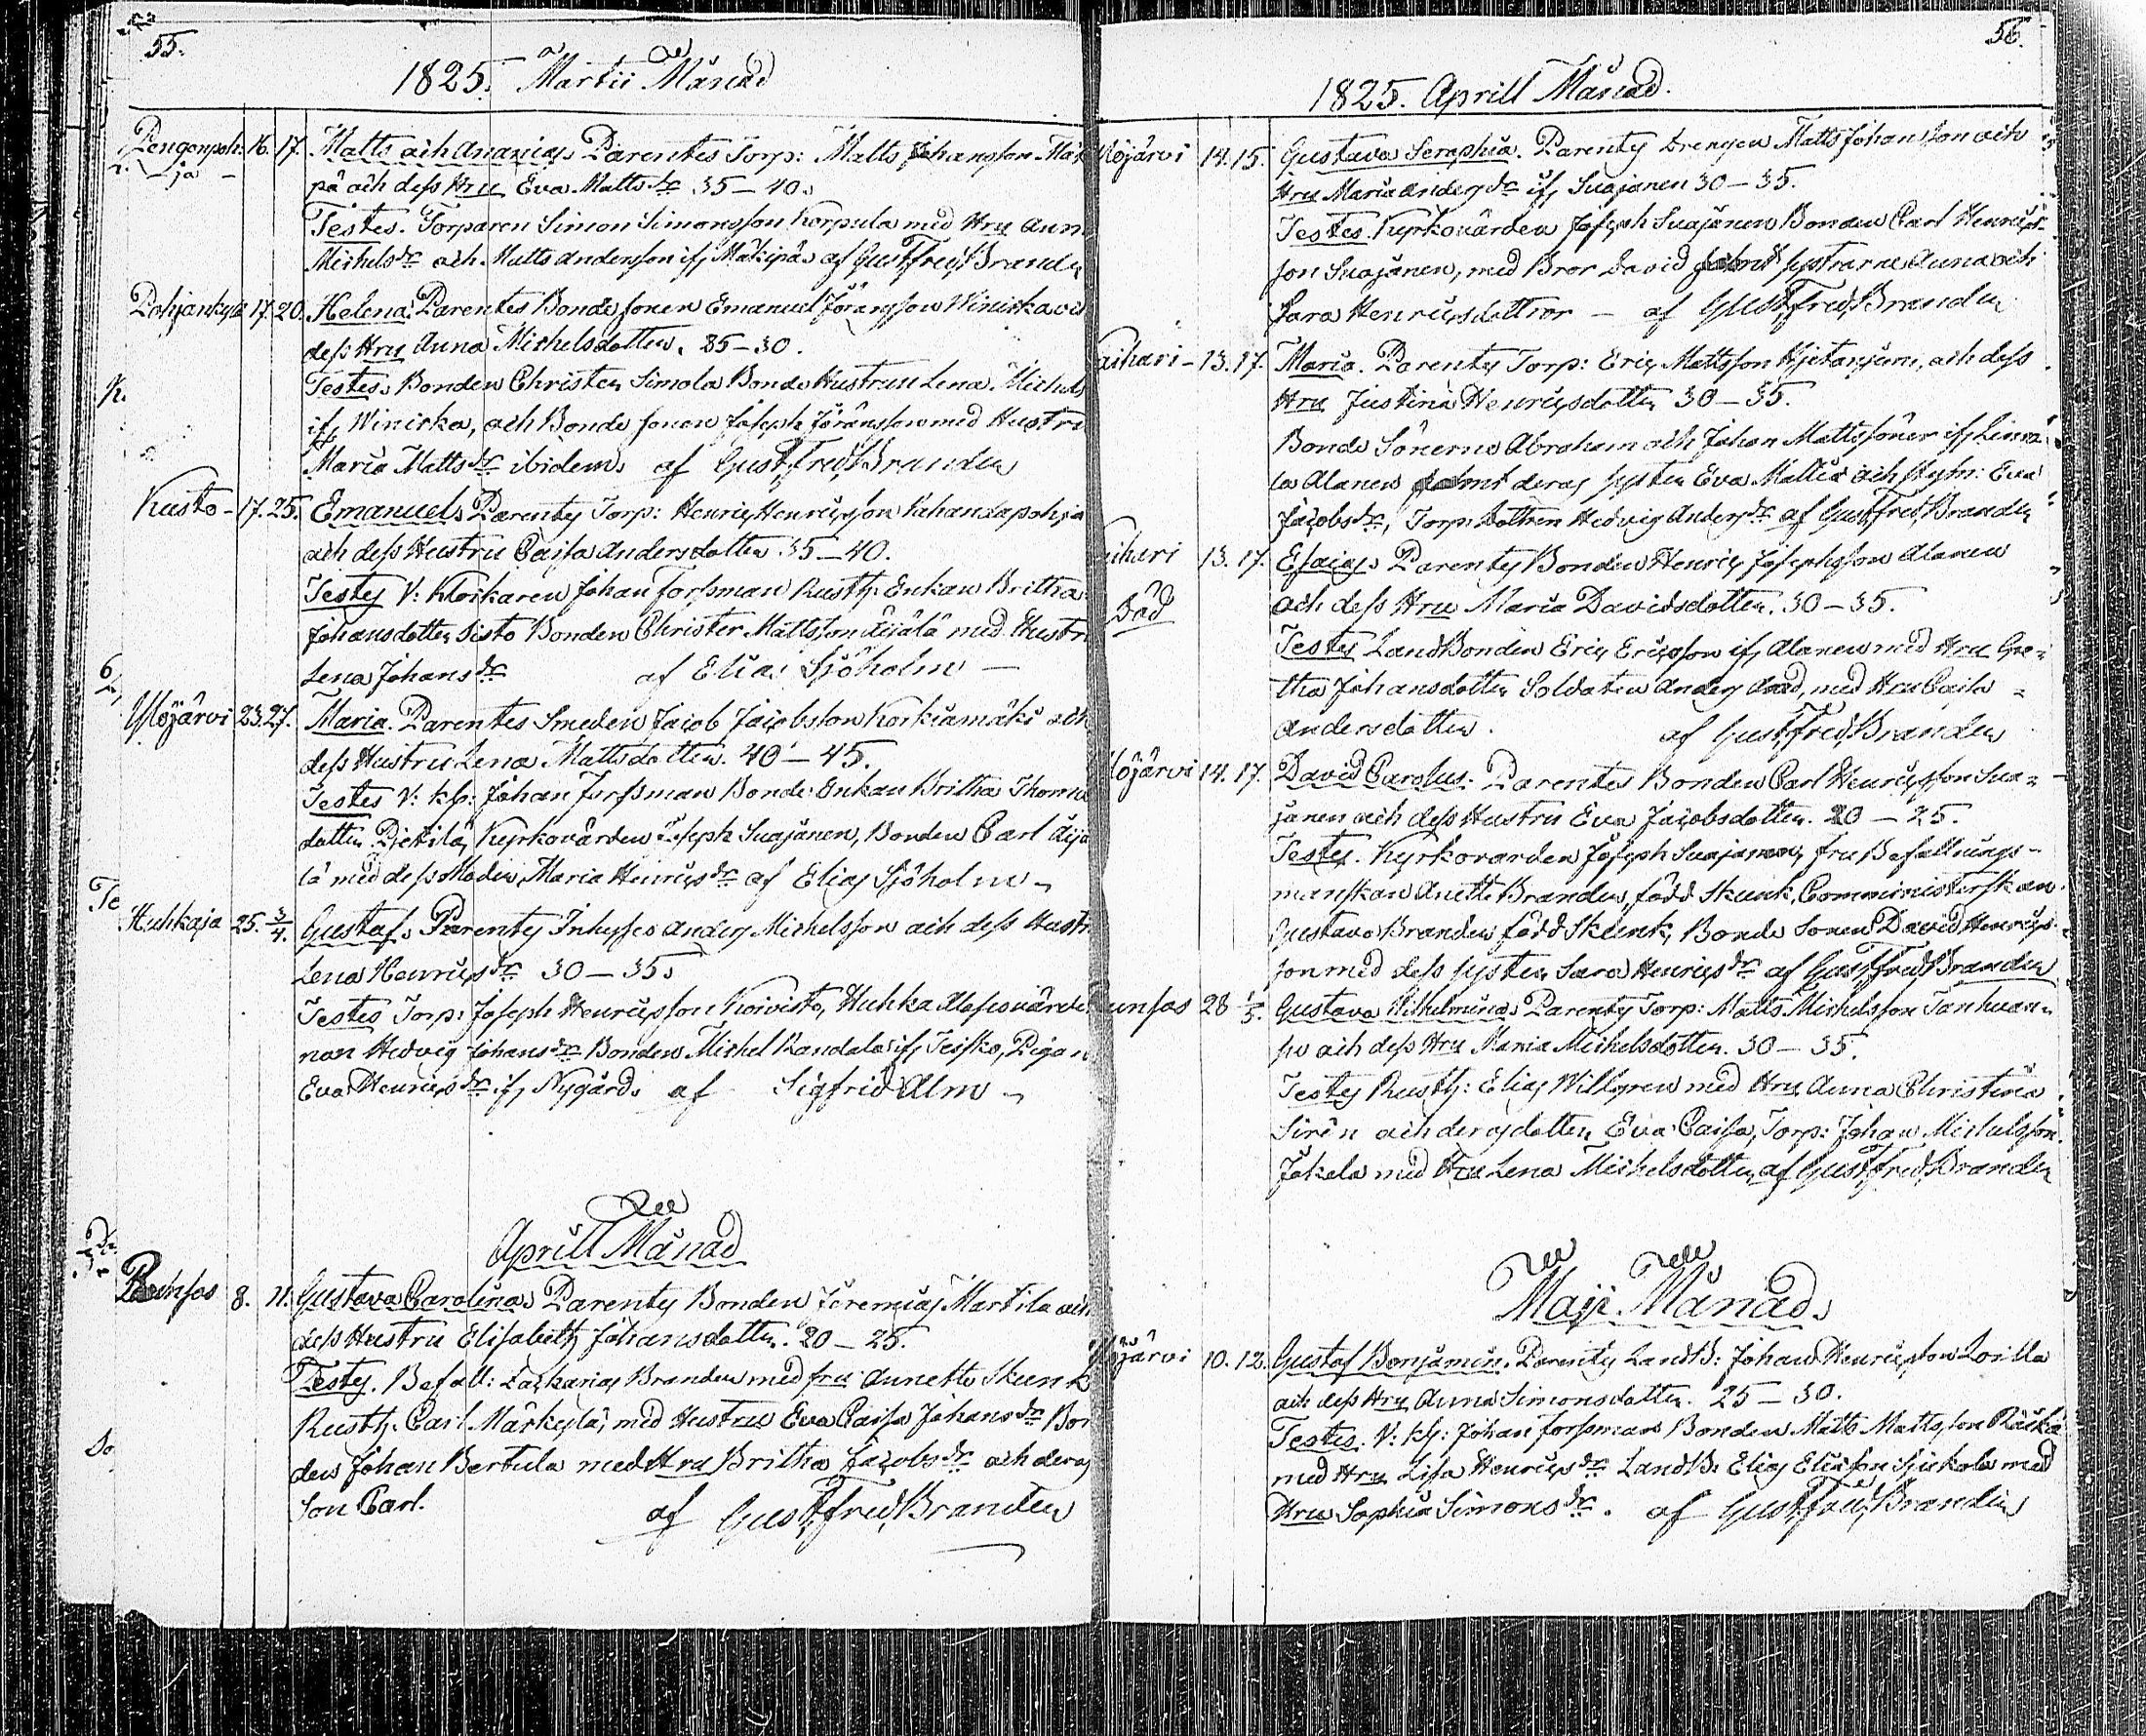 55.
1825. Martii Månad
Pengonpoh: 16. 17. Matts och Ananias. Parentes Torp: Matts Johansson Mäk
ja – pä och dess Hru Eva Matts dr 35–40.
Testes. Torparen Simon Simonsson Korpula med Hru Ann
Michels dr och Matts Andersson ifr Mäkipä. af Gust. Fred. Brander
Pohjankylä 17. 20. Helena. Parentes Bonde sonen Emanuel Göransson Winikka och
dess Hru Anna Michelsdotter. 25–30.
Testes. Bonden Christer Simola Bonde Hustrun Lena Michels
ifr Winikka, och Bonde sonen Joseph Göransson med Hustru
Maria Matts dr ibidem. af Gust. Fred. Brander
Kusto – 17. 25. Emanuel. Parentes Torp: Henric Henricsson
och dess Hustru Caisa Andersdotter 35–40.
Testes V: Klockaren Johan Forssman Rusth: Enkan Britha
Johansdotter Sisto Bonden Christer Mattsson Äijälä med Hustru
Lena Johans dr af Elias Sjöholm –
Ylöjärvi 23. 27. Maria. Parentes Smeden Jacob Jacobsson Korkiamäki och
dess Hustru Lena Mattsdotter. 40–45.
Testes V: Kl: Johan Forssman Bonde Enkan Britha Thomas
dotter Pietilä, Kyrkovärden Joseph Suojanen, Bonden Carl Äijä
lä med dess Moder Maria Henrics dr af Elias Sjöholm –
Huhkaja 25. 3/4. Gustaf. Parentes Inhyses Anders Michelsson och dess Hustru
Lena Henrics dr 30–35.
Testes Torp: Joseph Henricsson Koivisto, Huhka
nan Hedvig Johans dr Bonden Michel Randala ifr Teisko, Pigan
Eva Henrics dr ifr Nygård. af Sigfrid Alm –
Aprill Månad
8. 11. Gustava Carolina. Parentes Bonden Jeremias Martila och
dess Hustru Elisabeth Johansdotter. 20–25.
Testes. Befall: Zacharias Brander med fru Annette Skunk
Rusth: Carl Märkylä, med Hustru Eva Caisa Johans dr Bon
den Johan Bertula med Hru Britha Jacobs dr och deras
son Carl. af Gust. Fred. Brander
56.
1825. Aprill Månad.
löjärvi 14. 15. Gustava Seraphia. Parentes Drengen Matts Johansson och
Hru Maria Anders dr ifr Suojanen 30–35.
Testes. Kyrkovärden Joseph Suojanen Bonden Carl Henrics
son Suojanen, med Bror David samt systrarne Anna och
Sara Henricsdottror – af Gust. Fred. Brander
aihari – 13. 17. Maria. Parentes Torp: Eric Mattsson och dess
Hru Justina Henricsdotter 30–35.
Bonde Sönerne Abraham och Johan Mattssöner ifr
la Alanen samt deras syster Eva Matts dr och Hustr: Eva
Jacobs dr, Torp: dottren Hedvig Anders dr af Gust. Fred. Brander
aihari 13. 17. Esaias. Parentes Bonden Henric Josephsson Alanen
Död och dess Hru Maria Davidsdotter. 30–35.
Testes LandBonden Eric Ericsson ifr Alanen med Hru Gre-
tha Johansdotter Soldaten Anders med Hru Caisa
Andersdotter. af Gust. Fred. Brander
löjärvi 14. 17. David Carolus. Parentes Bonden Carl Henricsson Suo-
janen och dess Hustru Eva Jacobsdotter. 20–25.
Testes. Kyrkovärden Joseph Suojanen, fru Befallnings-
manskan Anette Brander, född Skunk, Comministerskan
Gustava Brander född Skunk, Bonde Sonen David Henrics-
son med dess syster Sara Henrics dr af Gust. Fred. Brander
unsas 28 1/5. Gustava Wilhelmina. Parentes Torp: Matts Michelsson Tanhuan-
pä och dess Hru Maria Michelsdotter. 30–35.
Testes Rusth: Elias Willgren med Hru Anna Christina
Sirén och deras dotter Eva Caisa, Torp: Johan Michelsson
Jokela med Hru Lena Michelsdotter af Gust. Fred. Brander
Maji Månad.
öjärvi 10. 12. Gustaf Benjamin. Parentes LandB: Johan Henricsson
och dess Hru Anna Simonsdotter. 25–30.
Testes. V: Kl: Johan Forssman Bonden Matts Mattsson Räikä
med Hru Lisa Henrics dr LandB: Elias Eliasson med
Hru Sophia Simons dr. af Gust. Fred. Brander